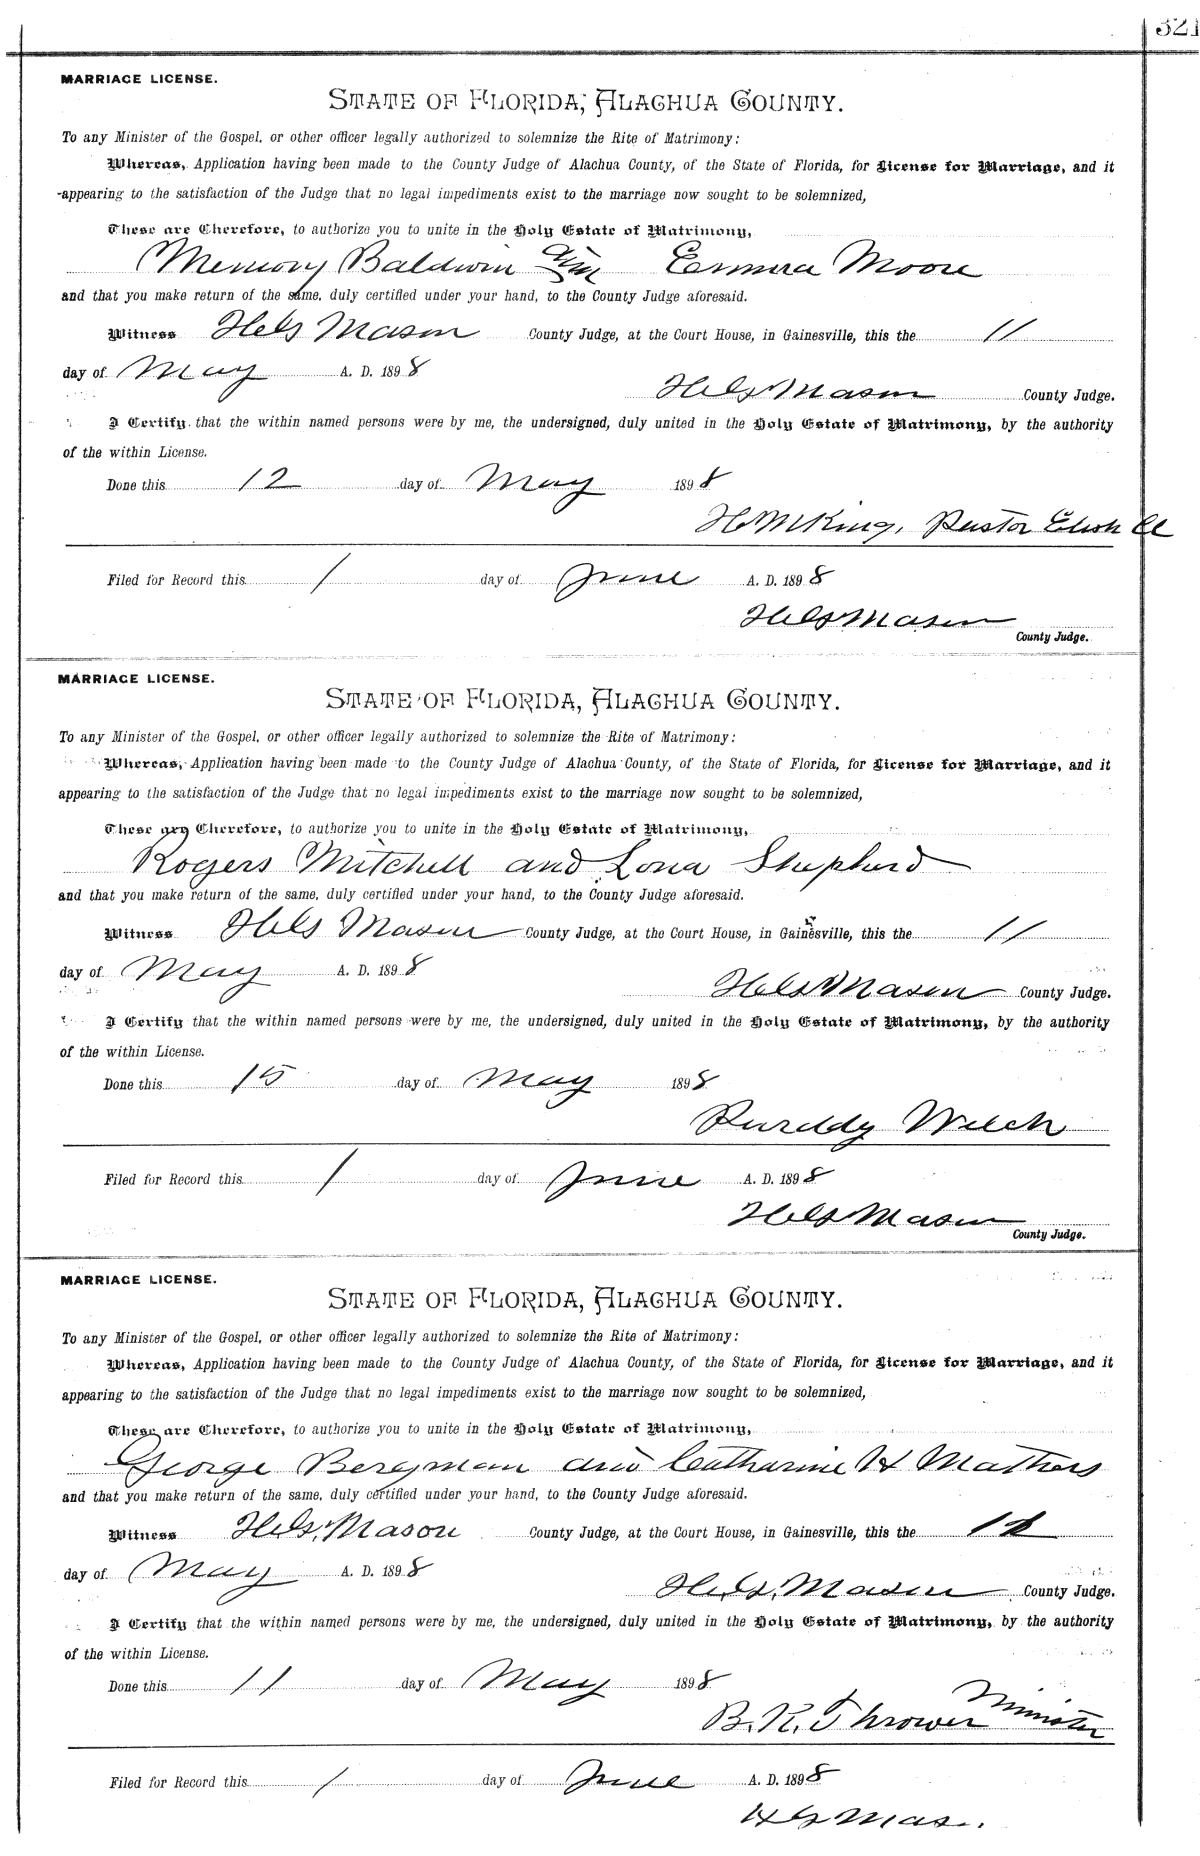 321
MARRIAGE LICENSE.
STATE OF FLORIDA, ALACHUA COUNTY.
To any Minister of the Gospel, or other officer legally authorized to solemnize the Rite of Matrimony:
Whereas, Application having been made to the County Judge of Alachua County, of the State of Florida, for License for Marriage, and it
appearing to the satisfaction of the Judge that no legal impediments exist to the marriage now sought to be solemnized,
These are Therefore, to authorize you to unite in the Holy Estate of Matrimony,
Memory Baldwin Emma Moore
and that you make return of the same, duly certified under your hand, to the County Judge aforesaid.
Witness H. G. Mason County Judge, at the Court House, in Gainesville, this the 11
day of May A. D. 1898
H. G. Mason County Judge.
I Certify that the within named persons were by me, the undersigned, duly united in the Holy Estate of Matrimony, by the authority
of the within License.
Done this 12 day of May 1898
H M King, Pastor
Filed for Record this 1 day of June A. D. 1898
H. G. Mason
County Judge.
MARRIAGE LICENSE.
STATE OF FLORIDA, ALACHUA COUNTY.
To any Minister of the Gospel, or other officer legally authorized to solemnize the Rite of Matrimony:
Whereas, Application having been made to the County Judge of Alachua County, of the State of Florida, for License for Marriage, and it
appearing to the satisfaction of the Judge that no legal impediments exist to the marriage now sought to be solemnized,
These are Therefore, to authorize you to unite in the Holy Estate of Matrimony,
Rogers Mitchell and Lona Shepherd
and that you make return of the same, duly certified under your hand, to the County Judge aforesaid.
Witness H. G. Mason County Judge, at the Court House, in Gainesville, this the 11
day of May A. D. 1898
H. G. Mason County Judge.
I Certify that the within named persons were by me, the undersigned, duly united in the Holy Estate of Matrimony, by the authority
of the within License.
Done this 15 day of May 1898
Welch
Filed for Record this 1 day of June A. D. 1898
H. G. Mason
County Judge.
MARRIAGE LICENSE.
STATE OF FLORIDA, ALACHUA COUNTY.
To any Minister of the Gospel, or other officer legally authorized to solemnize the Rite of Matrimony:
Whereas, Application having been made to the County Judge of Alachua County, of the State of Florida, for License for Marriage, and it
appearing to the satisfaction of the Judge that no legal impediments exist to the marriage now sought to be solemnized,
These are Therefore, to authorize you to unite in the Holy Estate of Matrimony,
George Bergman and Catharine H Mathers
and that you make return of the same, duly certified under your hand, to the County Judge aforesaid.
Witness H. G. Mason County Judge, at the Court House, in Gainesville, this the 11
day of May A. D. 1898
H. G. Mason County Judge.
I Certify that the within named persons were by me, the undersigned, duly united in the Holy Estate of Matrimony, by the authority
of the within License.
Done this 11 day of May 1898
B. K. Thrower Minister
Filed for Record this 1 day of June A. D. 1898
H G Mason